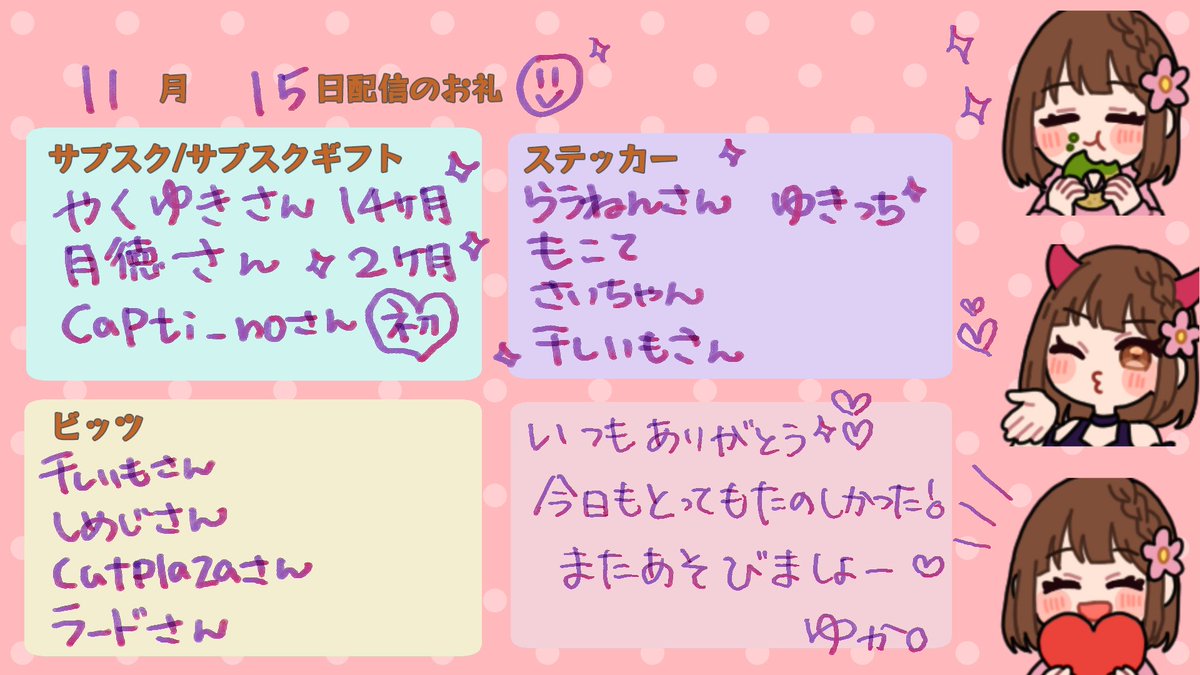 11月 15日配信のお礼
サブスク/サブスクギフト
やくゆきさん 14ヶ月
月徳一さん 2ヶ月
Capti_noさん 初
ステッカー
らうねんさん ゆきっち
もこて
さいちゃん
干しいもさん
ビッツ
干しいもさん
しめじさん
Cutplazaさん
ラードさん
いつもありがとう
今日もとってもたのしかった!
またあそびましょー
ゆか。